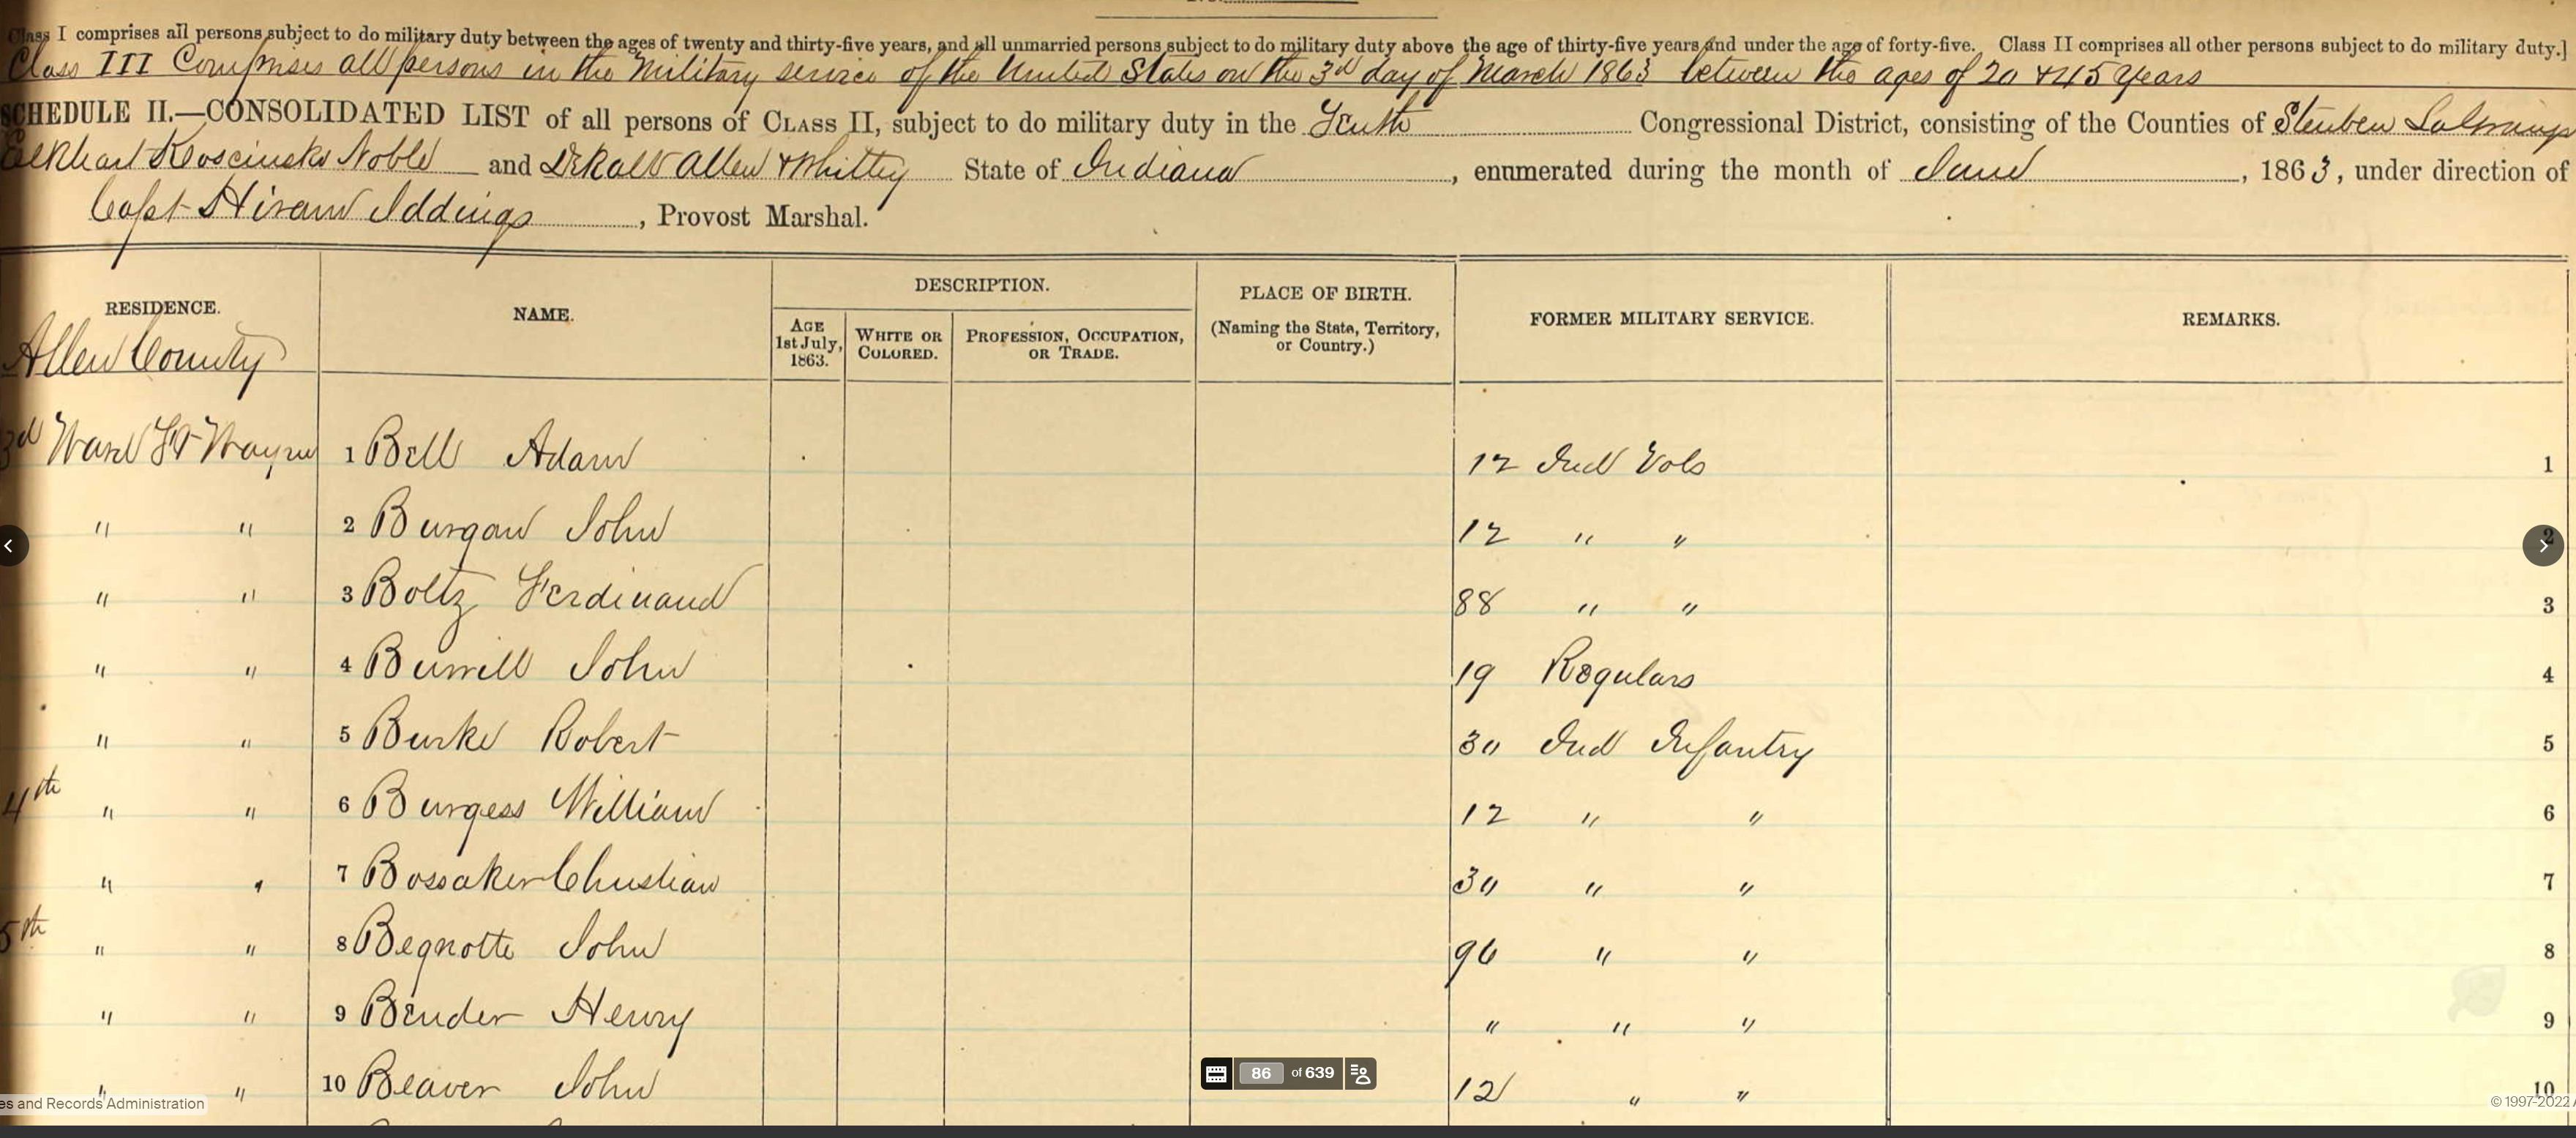 Class I comprises all persons subject to do military duty between the ages of twenty and thirty-five years, and all unmarried persons subject to do military duty above the age of thirty-five years and under the age of forty-five. Class II comprises all other persons subject to do military duty.]
Class III Comprises all persons in the Military service of the United States on the 3rd day of March 1863 between the ages of 20 & 45 years
SCHEDULE II.—CONSOLIDATED LIST of all persons of CLASS II, subject to do military duty in the Tenth Congressional District, consisting of the Counties of Steuben LaGrange
Elkhart Kosciusko Noble and DeKalb Allen & Whitley State of Indiana, enumerated during the month of June, 1863, under direction of
Capt Hiram Iddings, Provost Marshal.
RESIDENCE. NAME. DESCRIPTION. PLACE OF BIRTH. (Naming the State, Territory, or Country.) FORMER MILITARY SERVICE. REMARKS.
AGE 1st July, 1863. WHITE OR COLORED. PROFESSION, OCCUPATION, OR TRADE.
Allen County
3d Ward Ft Wayne 1 Bell Adam 12 Ind Vols 1
" " 2 Burgaw John 12 " " 2
" " 3 Boltz Ferdinand 88 " " 3
" " 4 Burrill John 19 Regulars 4
" " 5 Burke Robert 30 Ind Infantry 5
4th " " 6 Burgess William 12 " " 6
" " 7 Bossaker Christian 30 " " 7
5th " " 8 Begnotte John 96 " " 8
" " 9 Bender Henry " " " 9
" " 10 Beaver John 12 " " 10
86 of 639
es and Records Administration
© 1997-2022